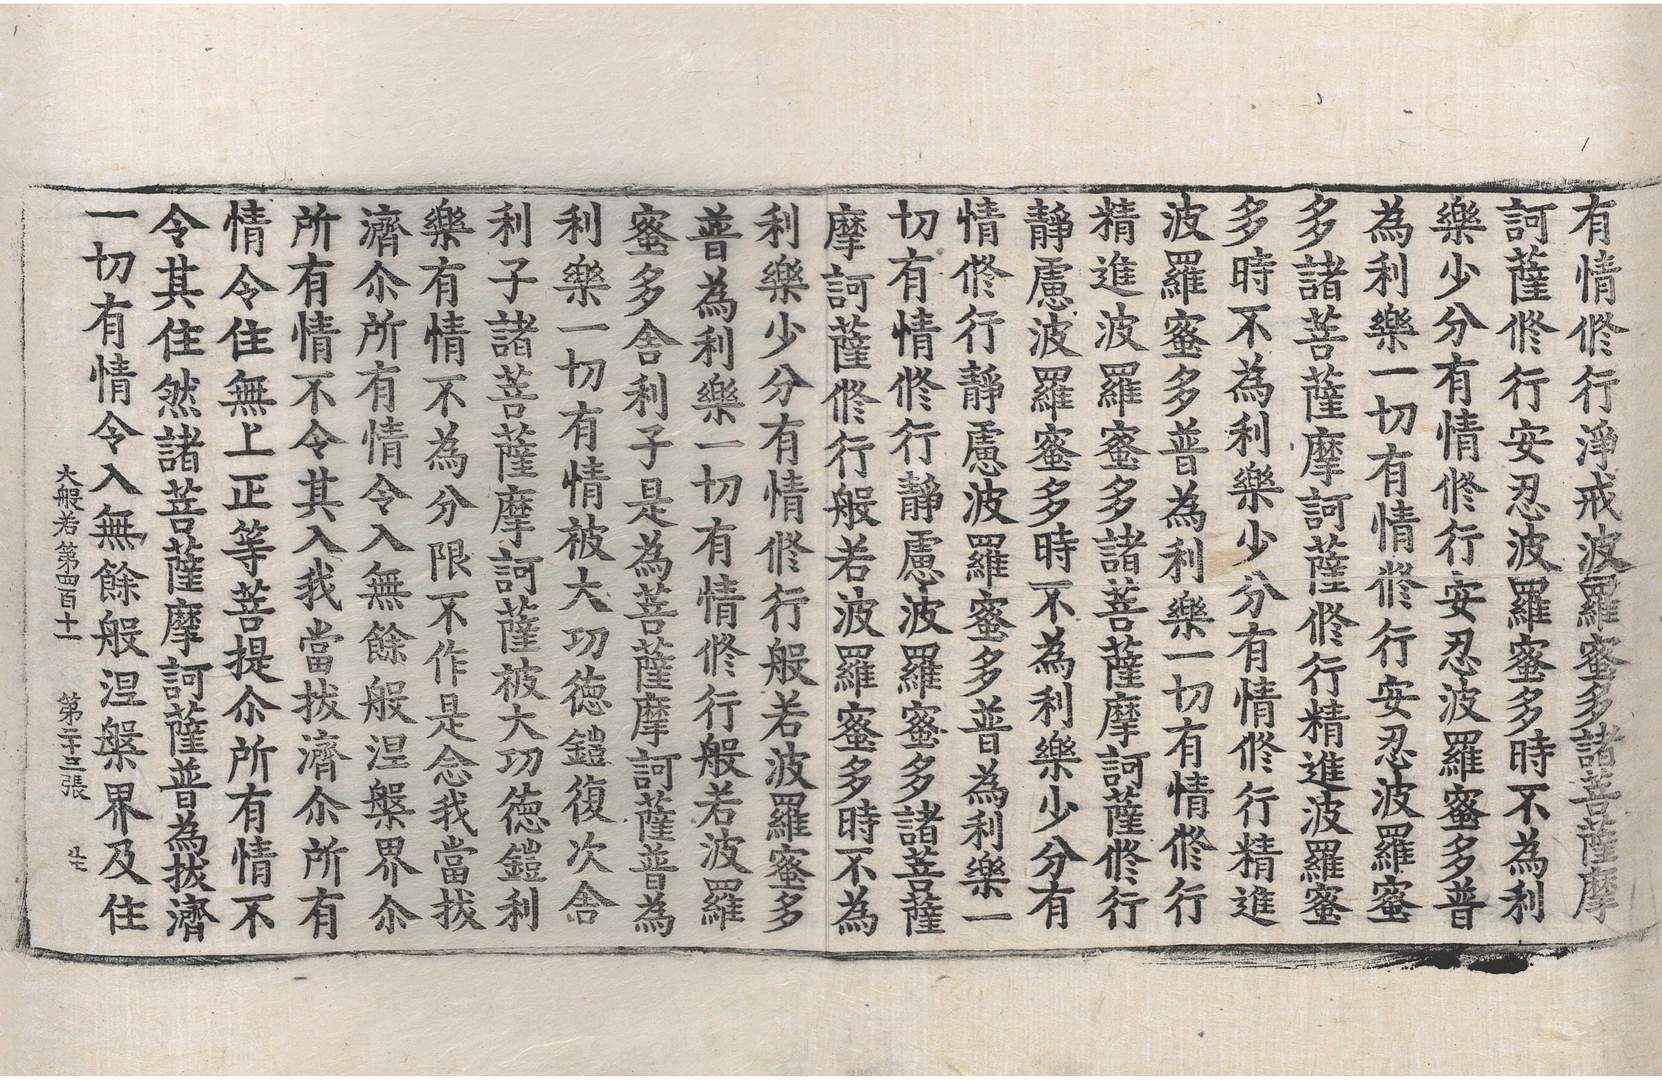 有情修行淨戒波羅蜜多諸菩薩摩
訶薩修行安忍波羅蜜多時不為利
樂少分有情修行安忍波羅蜜多普
為利樂一切有情修行安忍波羅蜜
多諸菩薩摩訶薩修行精進波羅蜜
多時不為利樂少分有情修行精進
波羅蜜多普為利樂一切有情修行
精進波羅蜜多諸菩薩摩訶薩修行
靜慮波羅蜜多時不為利樂少分有
情修行靜慮波羅蜜多普為利樂一
切有情修行靜慮波羅蜜多諸菩薩
摩訶薩修行般若波羅蜜多時不為
利樂少分有情修行般若波羅蜜多
普為利樂一切有情修行般若波羅
蜜多舍利子是為菩薩摩訶薩普為
利樂一切有情被大功德鎧復次舍
利子諸菩薩摩訶薩被大功德鎧利
樂有情不為分限不作是念我當拔
濟尒所有情令入無餘般涅槃界尒
所有情不令其入我當拔濟尒所有
情令住無上正等菩提尒所有情不
令其住然諸菩薩摩訶薩普為拔濟
一切有情令入無餘般涅槃界及住
大般若第四百十一 第二十三張